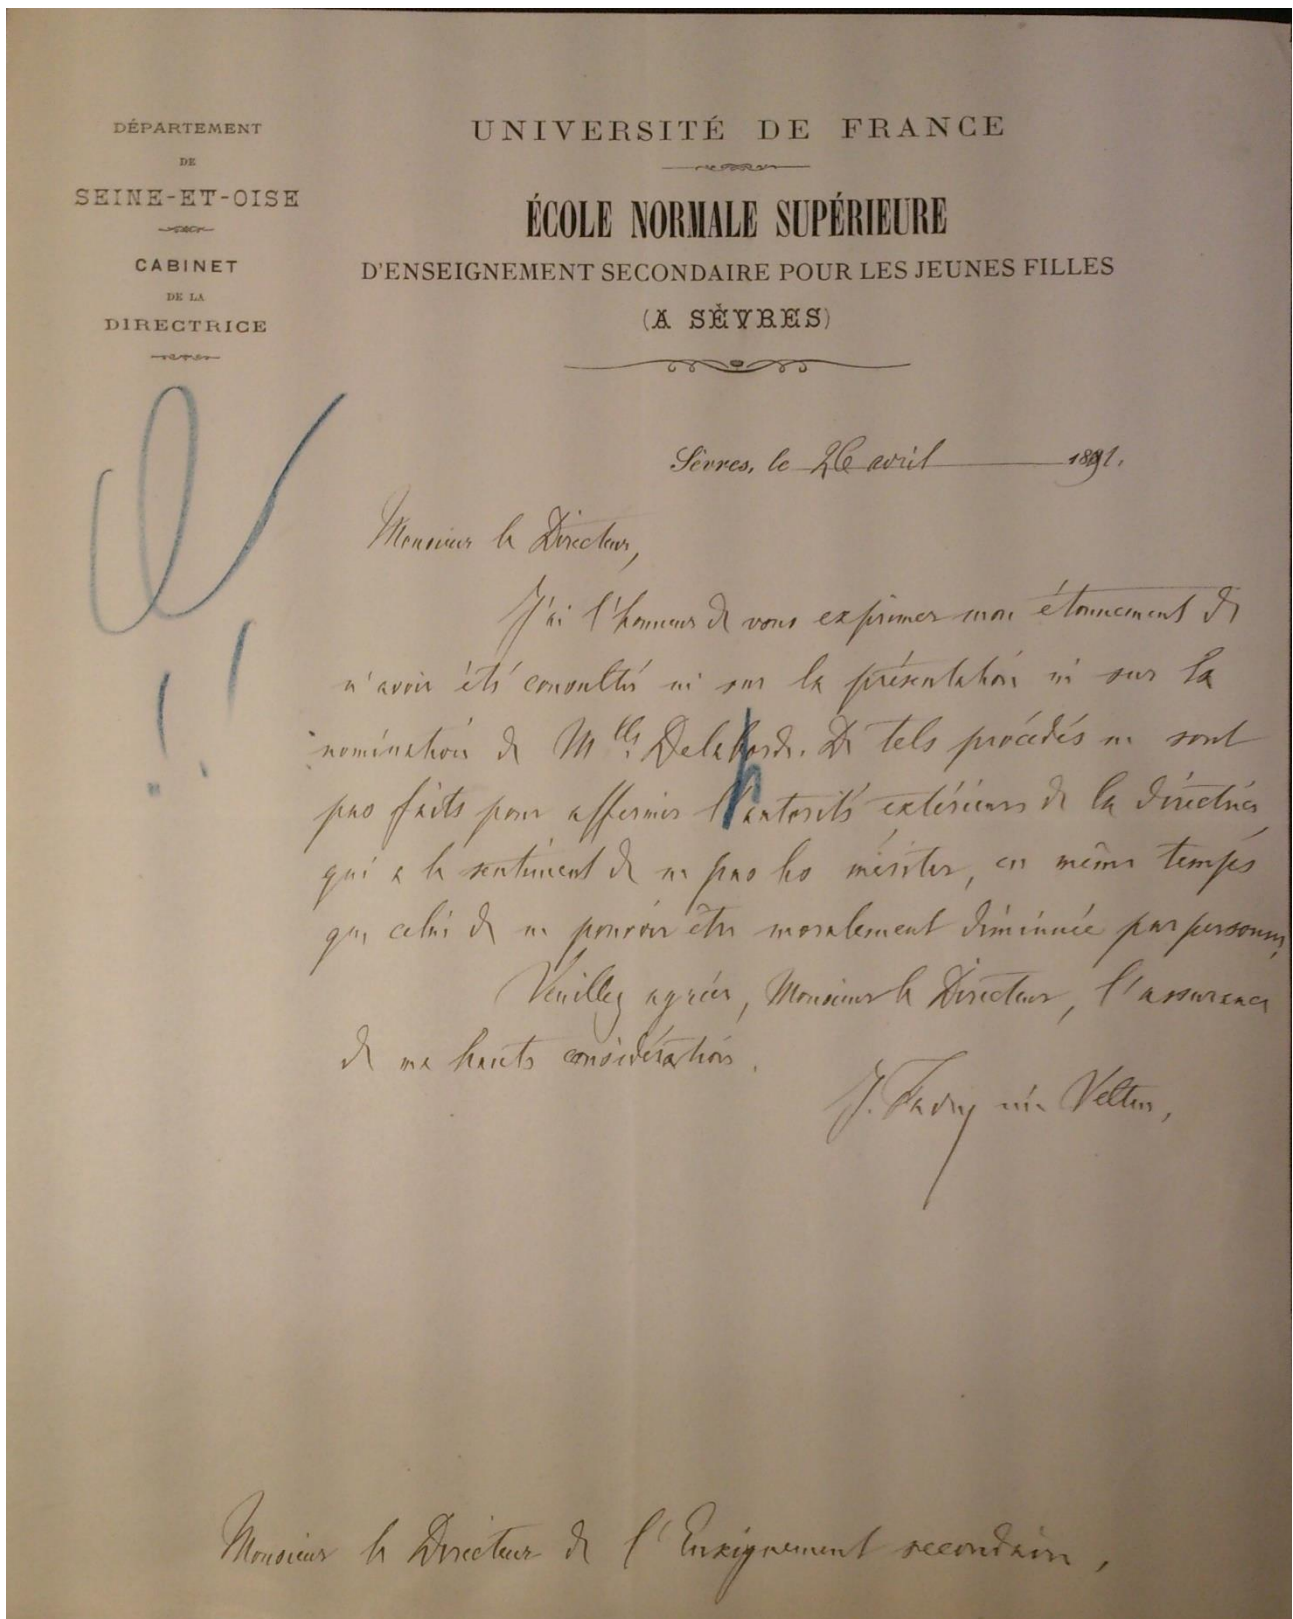 DÉPARTEMENT
DE
SEINE-ET-OISE
CABINET
DE LA
DIRECTRICE
UNIVERSITÉ DE FRANCE
ÉCOLE NORMALE SUPÉRIEURE
D'ENSEIGNEMENT SECONDAIRE POUR LES JEUNES FILLES
(A SÈVRES)
Sèvres, le 26 avril 1891.
Monsieur le Directeur,
J'ai l'honneur de vous exprimer mon étonnement de
n'avoir été consultée ni sur la présentation ni sur la
nomination de Mlle. De tels procédés ne sont
pas faits pour affermir l'autorité extérieure de la directrice,
qui a le sentiment de ne pas les mériter, en même temps
que celui de ne pouvoir être moralement diminuée par personne.
Veuillez agréer, Monsieur le Directeur, l'assurance
de ma haute considération.
J. Favre née Velten,
Monsieur le Directeur de l'Enseignement secondaire,